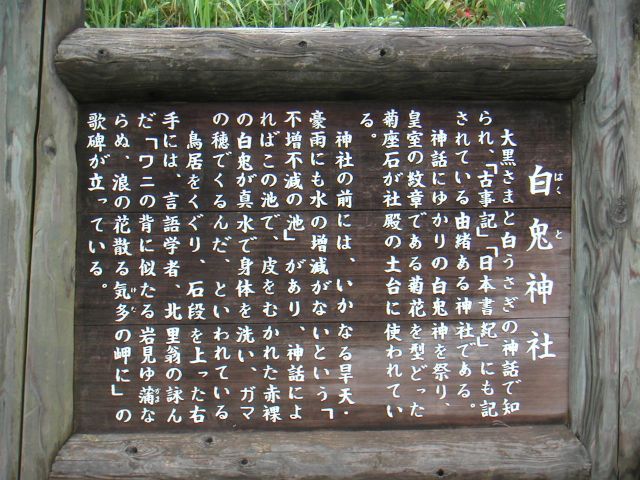 白兎神社
はくと
大黒さまと白うさぎの神話で知
られ、「古事記」「日本書紀」にも記
されている由緒ある神社である。
神話にゆかりの白兎神を祭り、
皇室の紋章である菊花を型どった
菊座石が社殿の土台に使われてい
る。
神社の前には、いかなる旱天・
豪雨にも水の増減がないという「
不増不減の池」があり、神話によ
ればこの池で、皮をむかれた赤裸
の白兎が真水で身体を洗い、ガマ
の穂でくるんだ、といわれている
鳥居をくぐり、石段を上った右
手には、言語学者、北里翁の詠ん
だ「ワニの背に似たる岩見ゆ蒲な
がま
らぬ、浪の花散る気多の岬に」の
けた
歌碑が立っている。